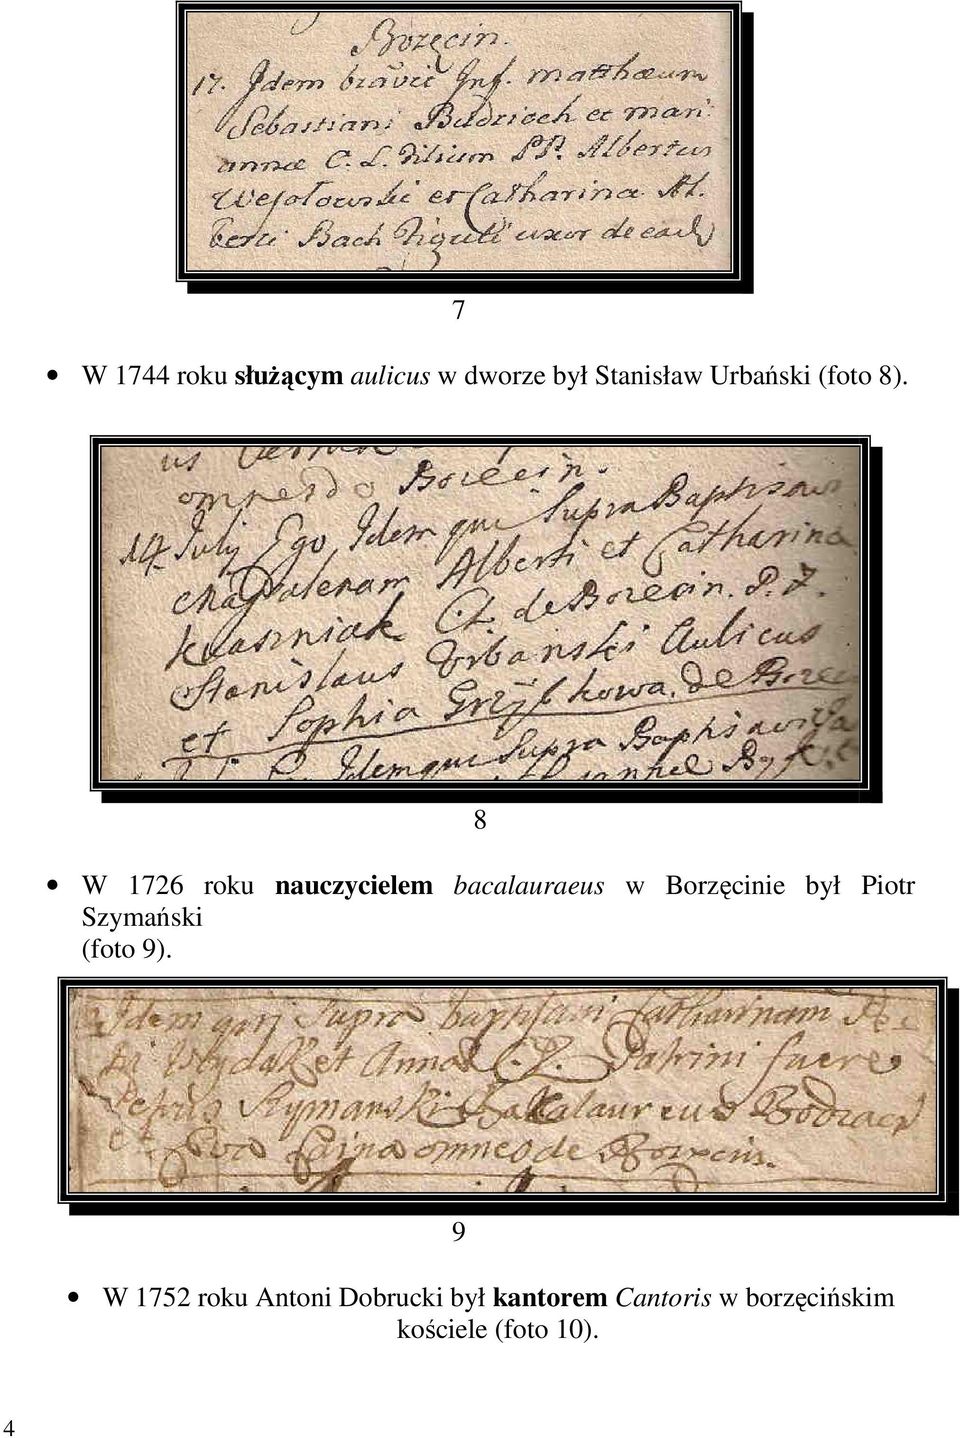 Borzęcin.
17. Idem bzavit Inf. matthæum
Sebastiani Budzioch et mari
annæ C. L. Filium PP. Albertus
Wesołowski et Catharina Al.
berti Bach Figuli uxor de ead
7
• W 1744 roku służącym aulicus w dworze był Stanisław Urbański (foto 8).
us
omnes do Borzecin.
14. July Ego Idem qui Supra Baptisavi
Magdalenam Alberti et Catharina
C. L. de Borzecin. P. F.
Stanislaus Urbanski Aulicus
et Sophia Grzybkowa. de Borze
Idem qui Supra Baptisavi
8
• W 1726 roku nauczycielem bacalauraeus w Borzęcinie był Piotr
Szymański
(foto 9).
Idem qui Supra baptisavi Catharinam
et Anna C. L. Patrini fuere
Petrus Szymanski Bacalaureus
omnes de Borzecin.
9
• W 1752 roku Antoni Dobrucki był kantorem Cantoris w borzęcińskim
kościele (foto 10).
4